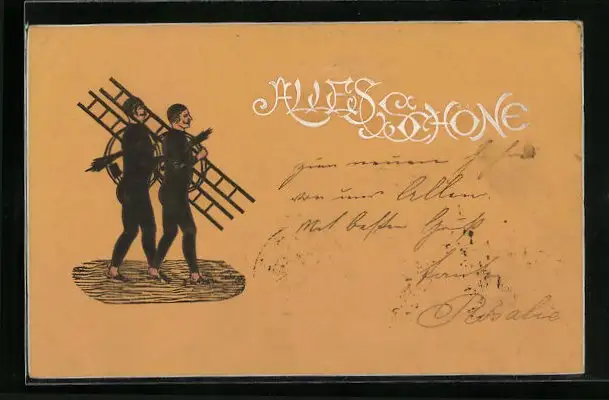 ALLES SCHÖNE
zum neuen Jahre
von uns Allen.
Mit besten Gruß
Rosalie